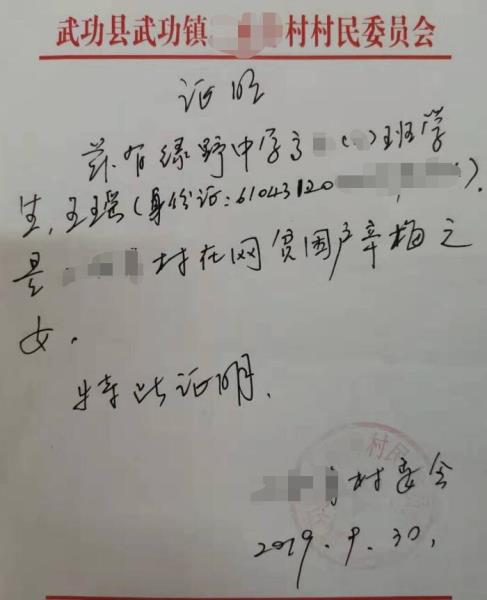 武功县武功镇村村民委员会
证明
兹有绿野中学高()班学
生，王瑶(身份证:61043120).
是村在网贫困户辛梅之
女.
特此证明.
村民
村委会
2019.9.30.